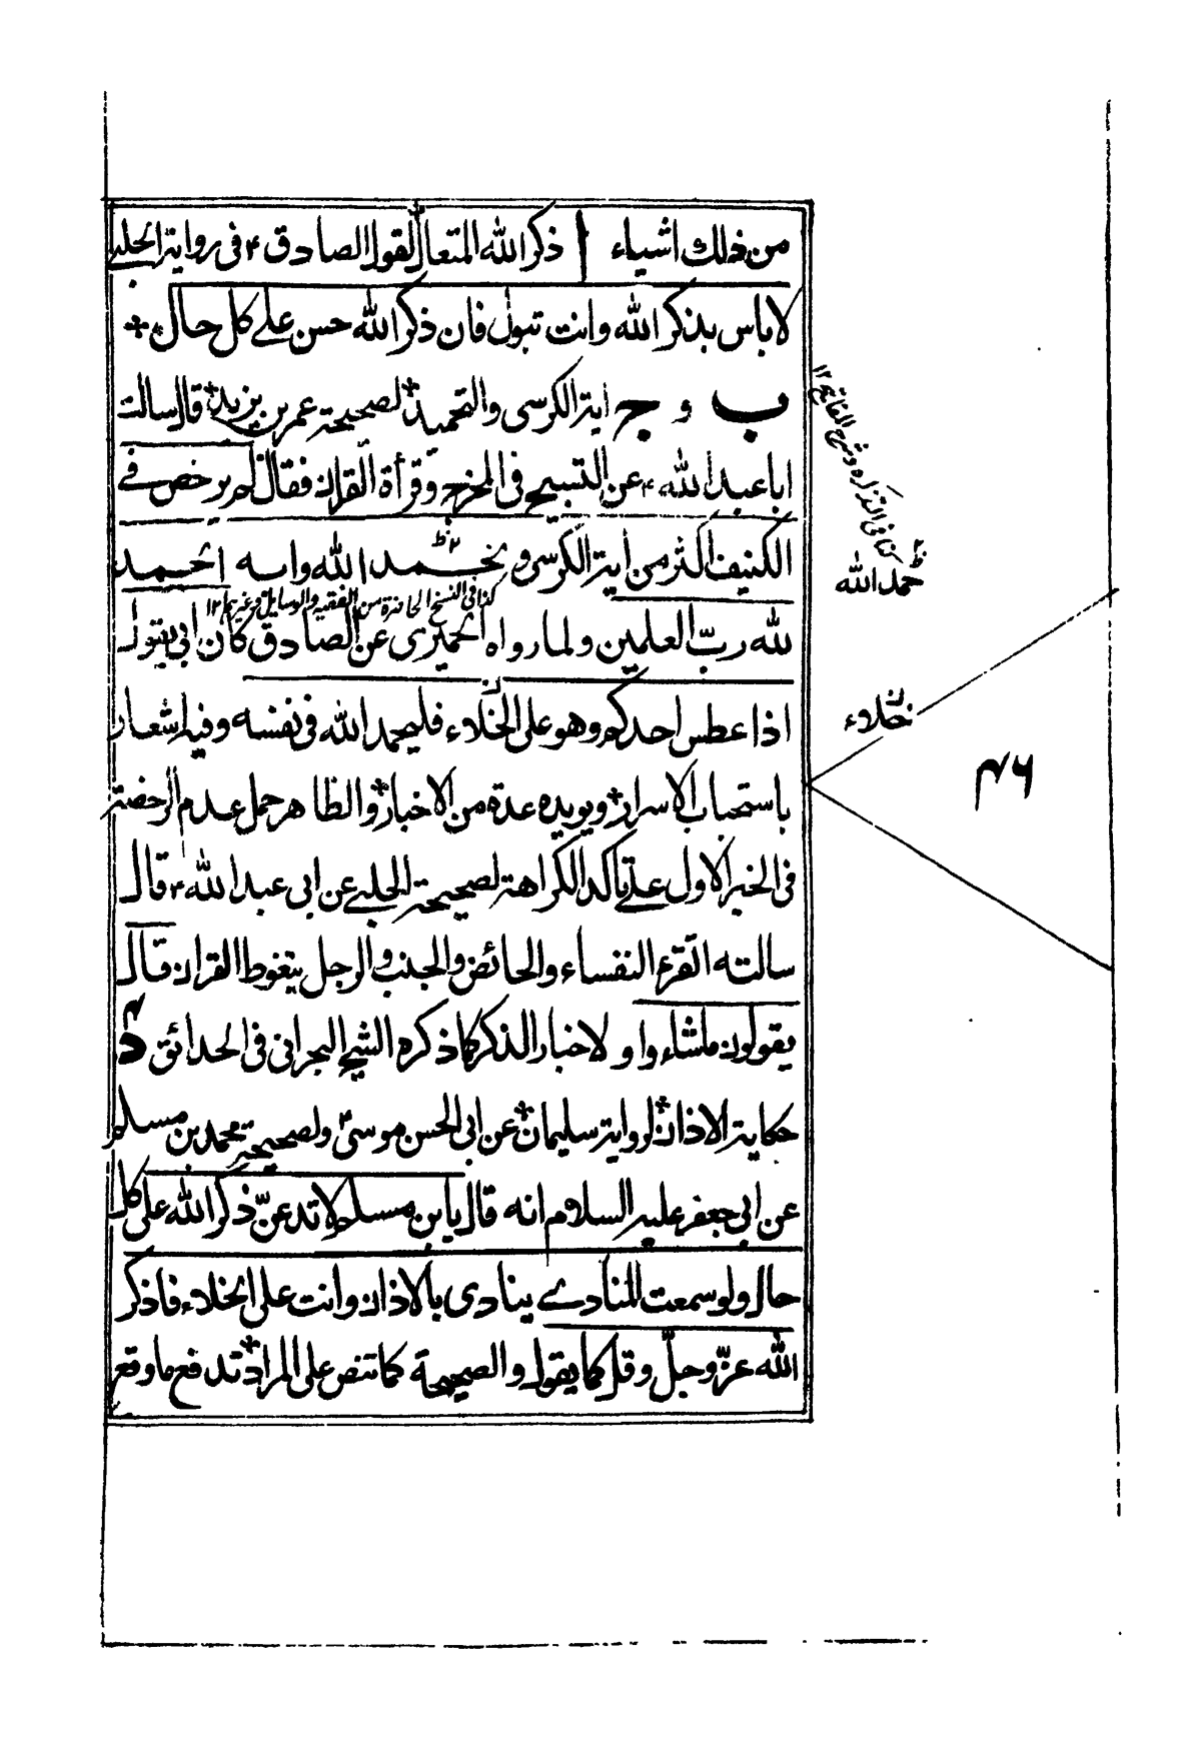 من ذلك اشياء ا ذكر الله المتعال لقول الصادق ع في رواية الحلبي
لا باس بذكر الله وانت تبول فان ذكر الله حسن على كل حال
ب و ج اية الكرسي والتحميد لصحيحة عمر بن يزيد قال سالت
ابا عبد الله ع عن التسبيح في المخرج وقرأة القران فقال لم يرخص في
الكنيف اكثر من اية الكرسي و يحمد الله واية الحمد
كذا في النسخ الحاضرة من الفقيه والوسايل وغيرهما ١٢
لله رب العلمين ولما رواه الحميرى عن الصادق كان ابي يقول
اذا عطس احدكم وهو على الخلاء فليحمد الله في نفسه وفيه اشعار
باستحباب الاسرار ويويده عدة من الاخبار والظاهر حمل عدم الرخصة
في الخبر الاول على تاكد الكراهة لصحيحة الحلبي عن ابى عبد الله ع قال
سالته اتقرء النفساء والحائض والجنب والرجل يتغوط القران قال
يقرؤن ماشاءوا ولاخبار الذكر كما ذكره الشيخ البحرانى فى الحدائق د
حكاية الاذان لرواية سليمان عن ابى الحسن موسى ع ولصحيحة محمد بن مسلم
عن ابي جعفر عليه السلام انه قال يابن مسلم لا تدعن ذكر الله على كل
حال ولو سمعت المنادى ينادى بالاذان وانت على الخلاء فاذكر
الله عز وجل وقل كما يقول والصحيحة كما تنص على المراد تدفع ما وقع
كذا في التذكرة وشرح المفاتيح ١٢
حمد الله
خلاء
٤٦